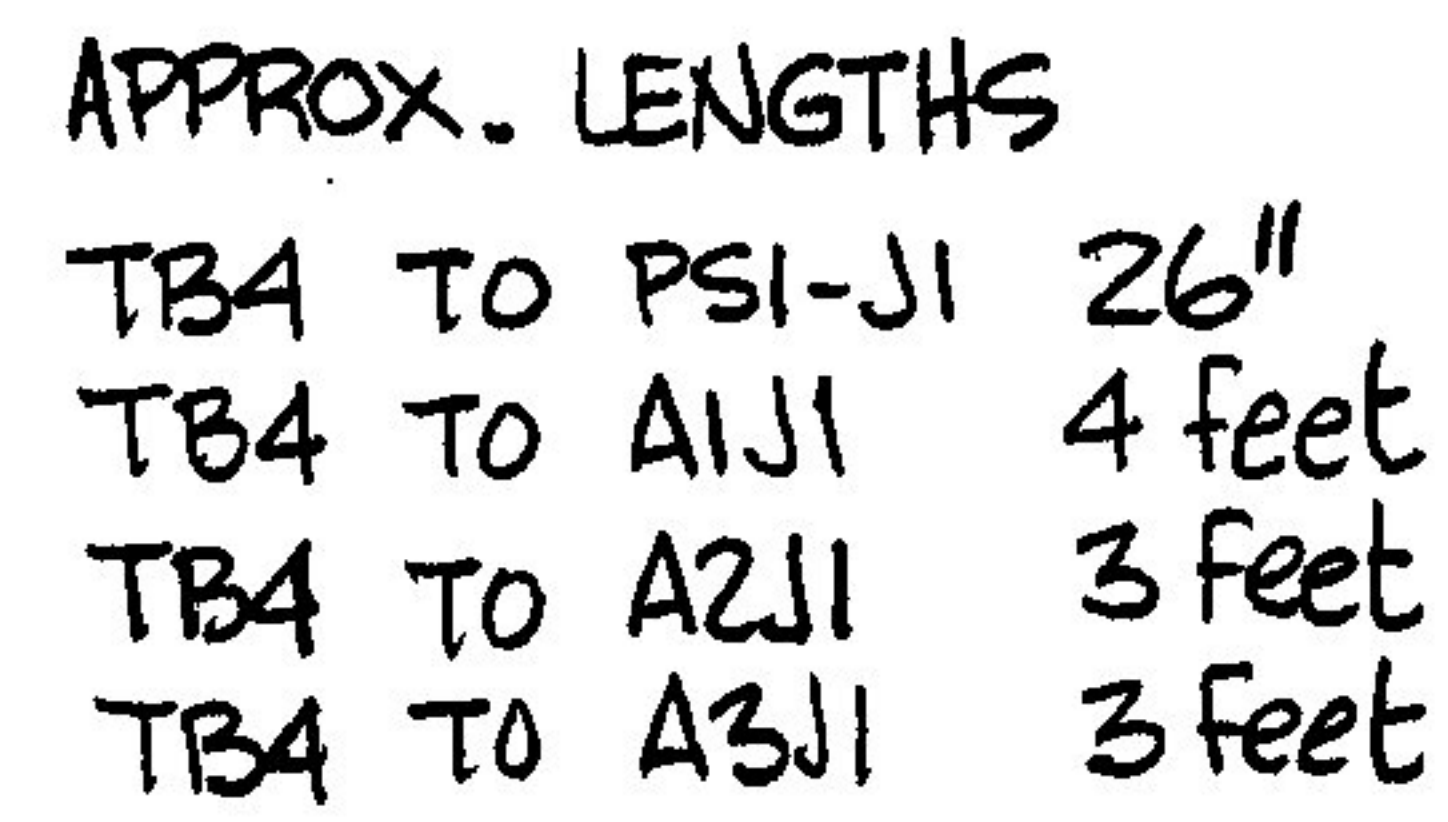 APPROX. LENGTHS
TB4 TO PS1-J1 26"
TB4 TO A1J1 4 feet
TB4 TO A2J1 3 feet
TB4 TO A3J1 3 feet